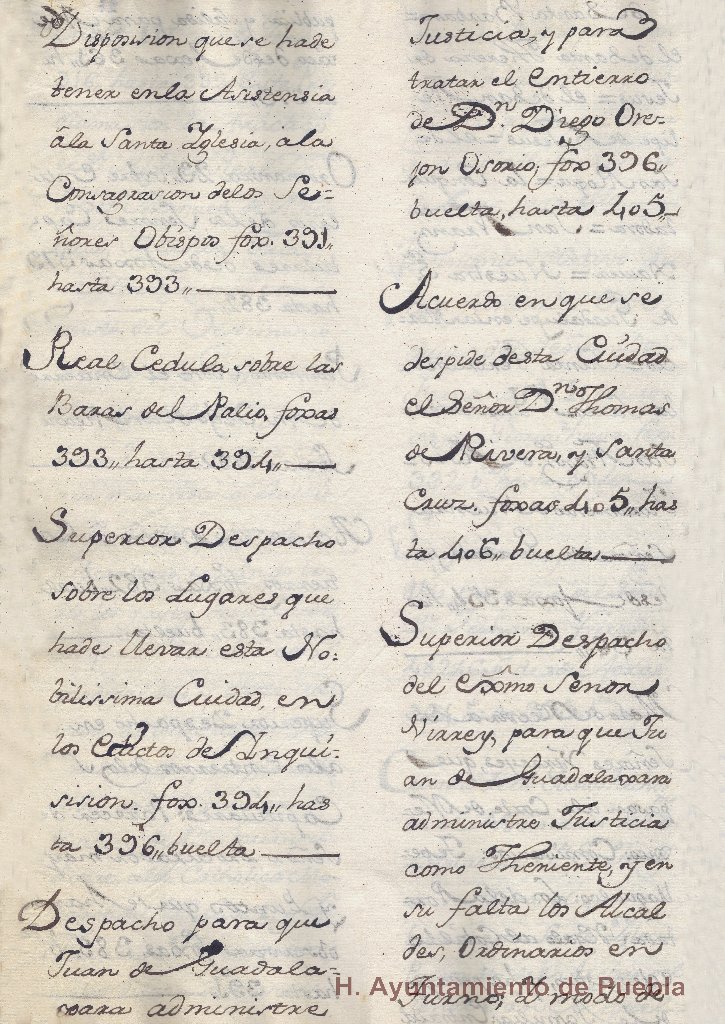 Disposision que se hade
tener enla Asistensia
âla Santa Yglesia, ala
Consagrasion delos Se=
ñores Obispos fox. 391,,
hasta 393,,
Real Cedula sobre las
Baras del Palio, foxas
393,, hasta 394,,
Superior Despacho
sobre los Lugares que
hade llevar esta No-
bilissima Ciudad, en
los Edictos de Inqui-
sision. fox. 394,, has
ta 396,, buelta
Despacho para que
Juan de Guadala-
xara administre
Justicia, y para
tratar el Entierro
de Dn. Diego Ore-
jon Osorio, fox 396,,
buelta, hasta 405,,
Acuerdo en que se
despide desta Ciudad
el Señor Dn. Thomas
de Rivera, y Santa
Cruz. foxas 405,, has
ta 406,, buelta
Superior Despacho
del Exmo Senor
Virrey, para que Ju
an de Guadalaxara
administre Justicia
como Theniente, y en
su falta los Alcal
des, Ordinarios en
Turno, â modo de
H. Ayuntamiento de Puebla